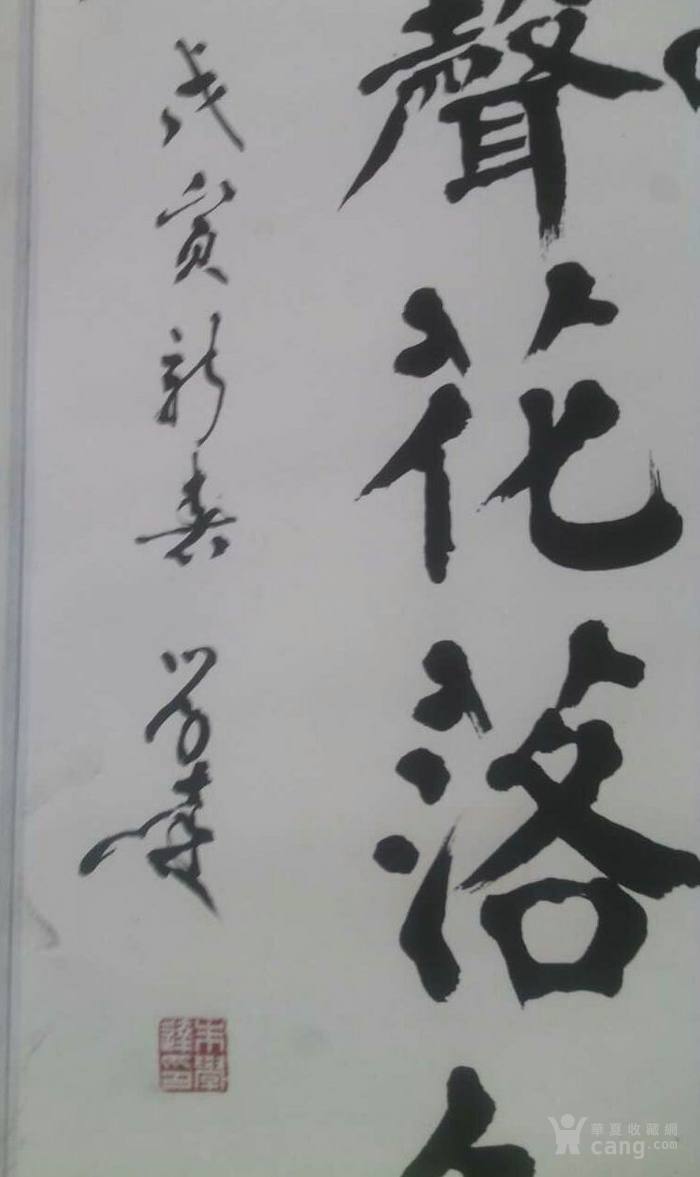 聲花落
戊寅新春 学達
朱學達印
華夏收藏網
cang.com